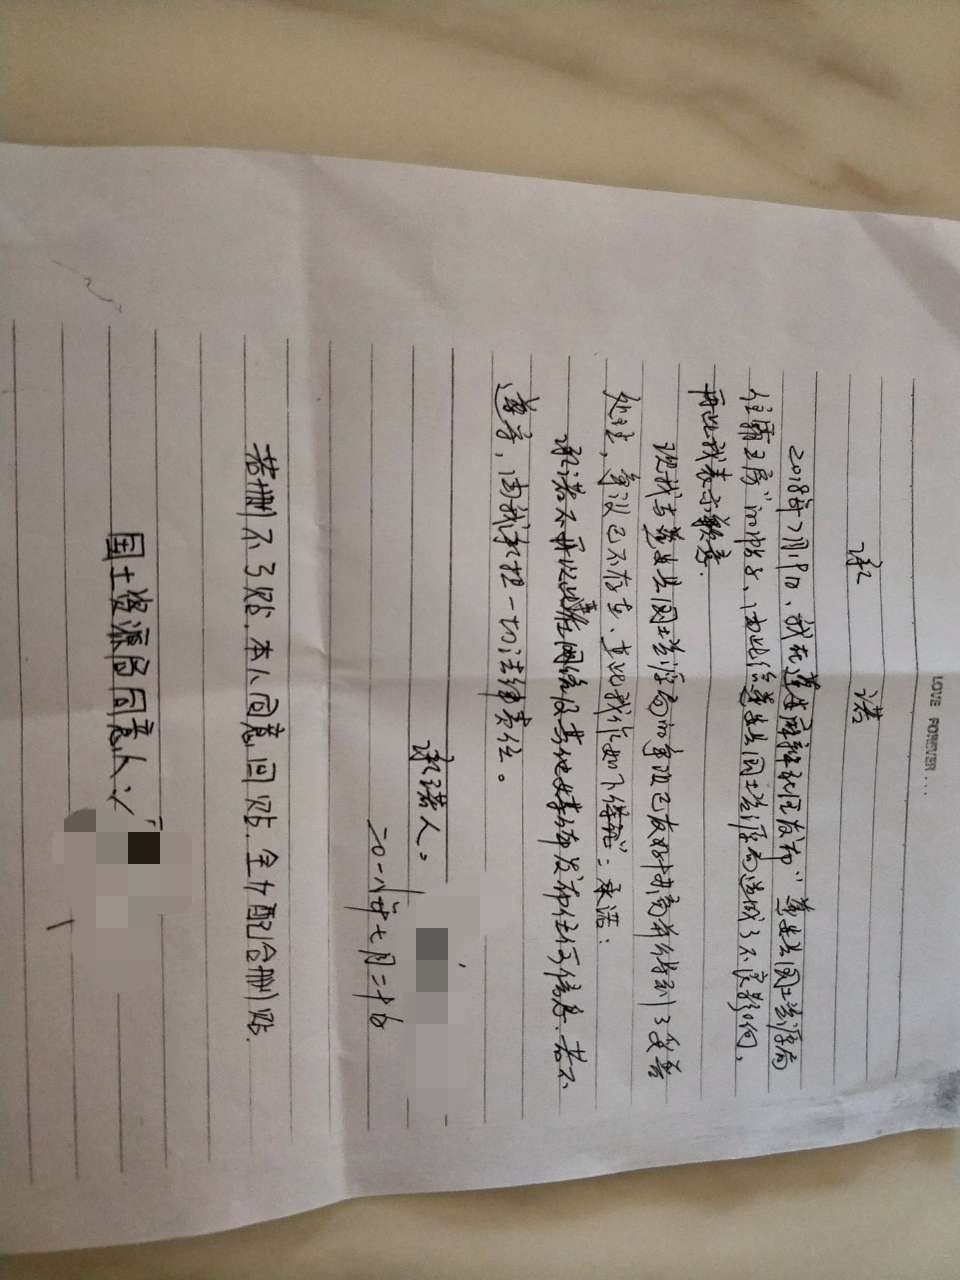 LOVE FOREVER...
承 诺
2018年7月19日、我在莲花网社区发布"莲花县国土资源局
住霸王房"的帖子、由此给莲花县国土资源局造成了不良影响,
再此我表示歉意.
现我与莲花县国土资源局的争议已友好协商并得到了妥善
处理, 争议已不存在、在此我作如下承诺:
承诺不再以此在网络及其他媒体发布任何信息. 若不
遵守, 由我承担一切法律责任。
承诺人。
二0一八年七月二十日
若删不了贴. 本人同意回贴. 全力配合删贴.
国土资源局同意人: